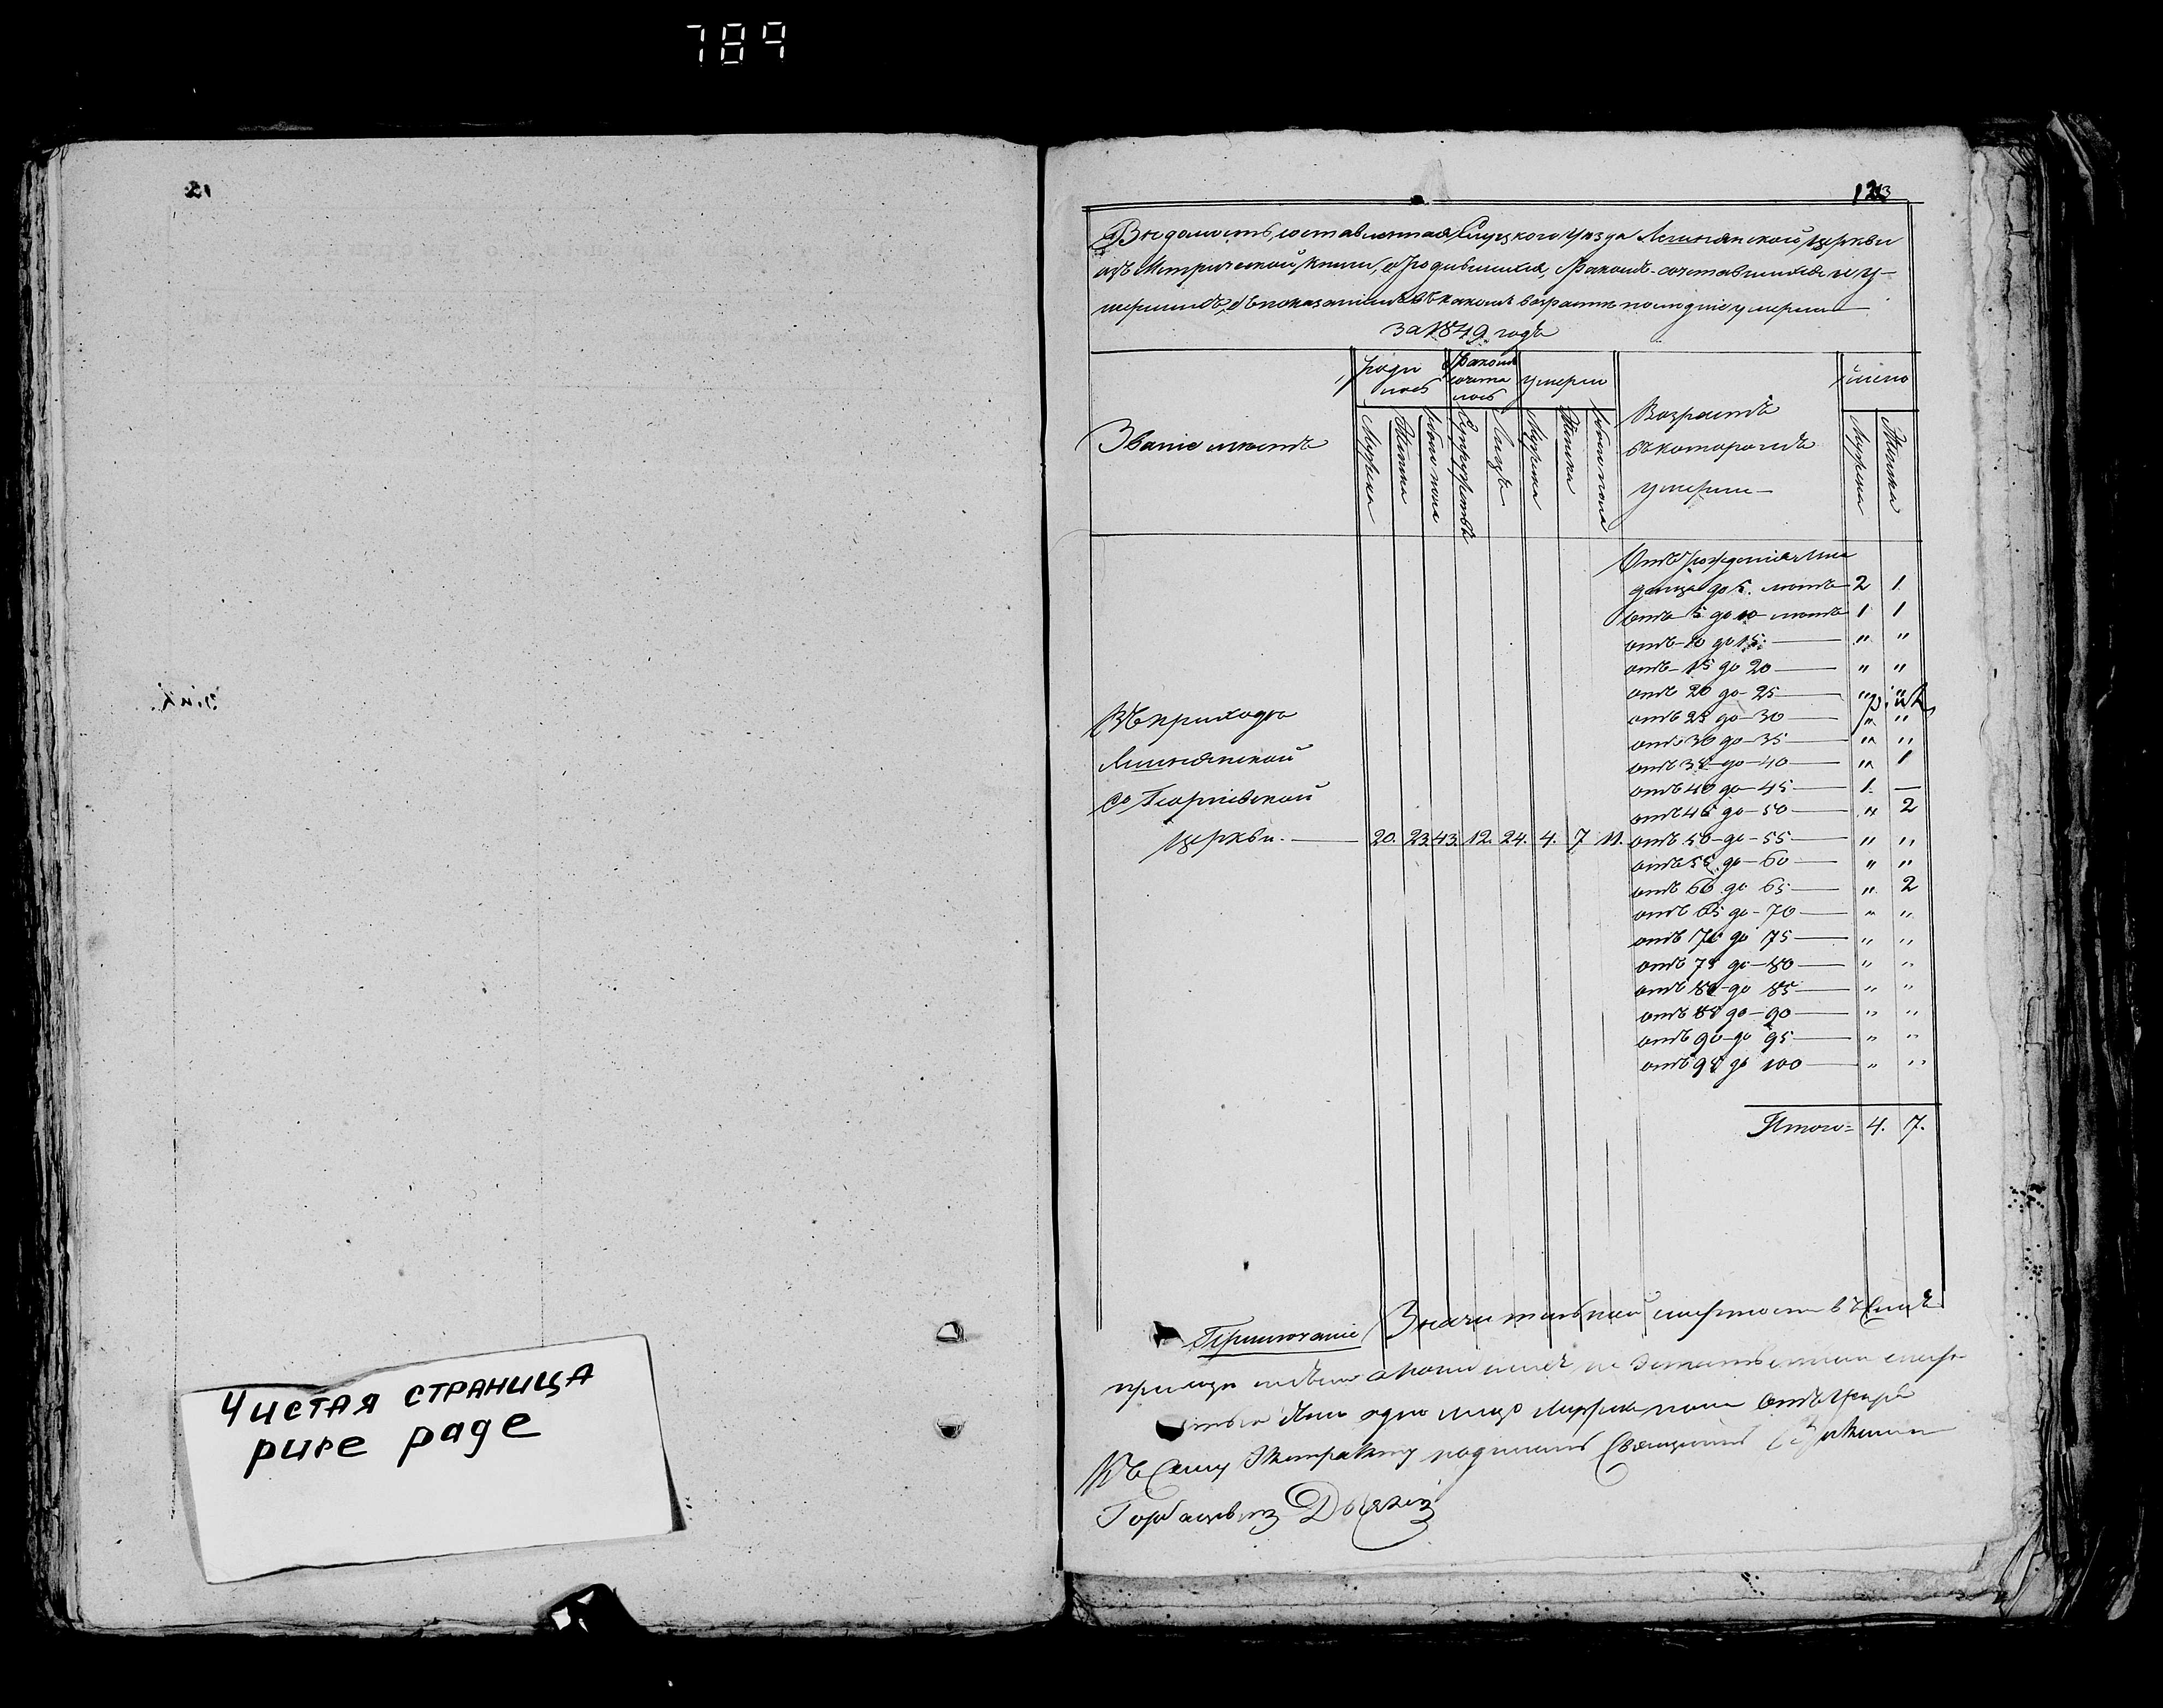 789
Чистая страница
pure page
123
Вѣдомость, составленная Слуцкаго уѣзда церкви
изъ Метрической книги, о родившихся, бракомъ-сочетавшихся и у-
мершихъ, съ показаніемъ въ какомъ возрастѣ послѣдніе умерли
за 1849 годъ
Званіе мѣстъ
Роди
лось
Бракомъ
сочета
лось
умерли
Возрастъ
въ которомъ
умерли —
число
Мужска
Женска
Обоего пола
Супружествъ
Лицъ
Мужска
Женска
Обоего пола
Мужска
Женска
Отъ рожденія мла
денца до 5. лѣтъ 2 1
отъ 5 до 10 лѣтъ 1 1
отъ 10 до 15 — " "
отъ 15 до 20 — " "
отъ 20 до 25 — " "
отъ 25 до 30 — " "
отъ 30 до 35 — " "
отъ 35 до 40 — " 1
отъ 40 до 45 — 1. —
отъ 45 до 50 — " 2
отъ 50 до 55 — " "
отъ 55 до 60 — " "
отъ 60 до 65 — " 2
отъ 65 до 70 — " "
отъ 70 до 75 — " "
отъ 75 до 80 — " "
отъ 80 до 85 — " "
отъ 85 до 90 — " "
отъ 90 до 95 — " "
отъ 95 до 100 — " "
Итого= 4. 7.
Въ приходѣ
Георгіевской
церкви. — 20. 23. 43. 12. 24. 4. 7 11.
Примѣчаніе Значительной смертности въ семъ
одно лице мужска пола отъ
Къ сему Экстракту подписался Священникъ
Горбацевичъ